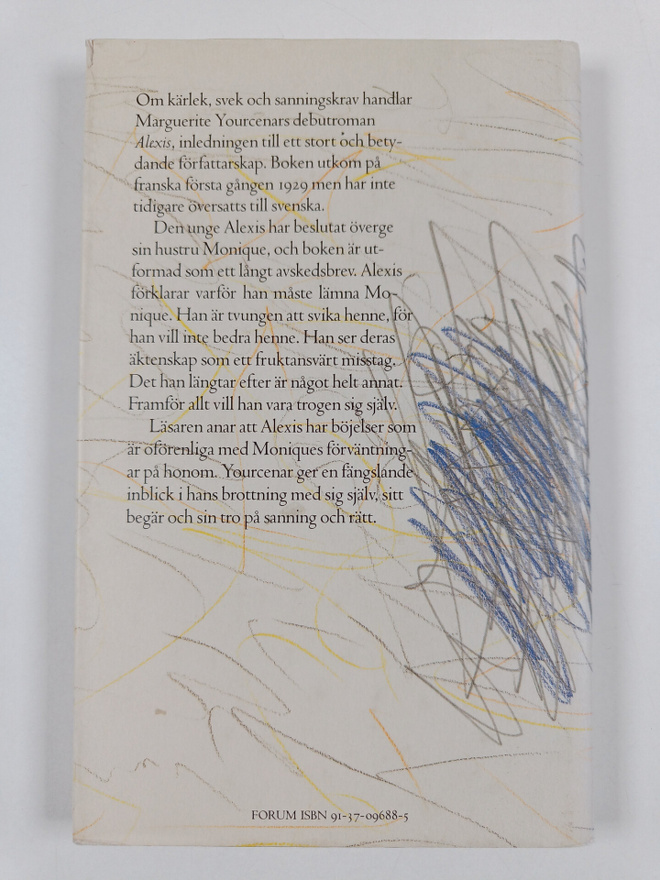 Om kärlek, svek och sanningskrav handlar
Marguerite Yourcenars debutroman
Alexis, inledningen till ett stort och bety-
dande författarskap. Boken utkom på
franska första gången 1929 men har inte
tidigare översatts till svenska.
Den unge Alexis har beslutat överge
sin hustru Monique, och boken är ut-
formad som ett långt avskedsbrev. Alexis
förklarar varför han måste lämna Mo-
nique. Han är tvungen att svika henne, för
han vill inte bedra henne. Han ser deras
äktenskap som ett fruktansvärt misstag.
Det han längtar efter är något helt annat.
Framför allt vill han vara trogen sig själv.
Läsaren anar att Alexis har böjelser som
är oförenliga med Moniques förväntning-
ar på honom. Yourcenar ger en fängslande
inblick i hans brottning med sig själv, sitt
begär och sin tro på sanning och rätt.
FORUM ISBN 91-37-09688-5